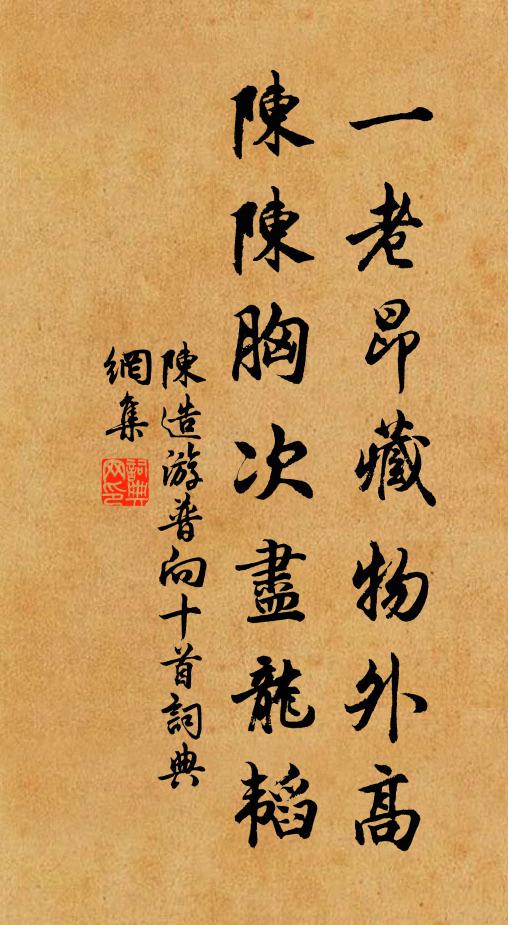 一老昂藏物外高
陳陳胸次盡龍韜
陳造游普向十首詞典
網集
詞典
网印